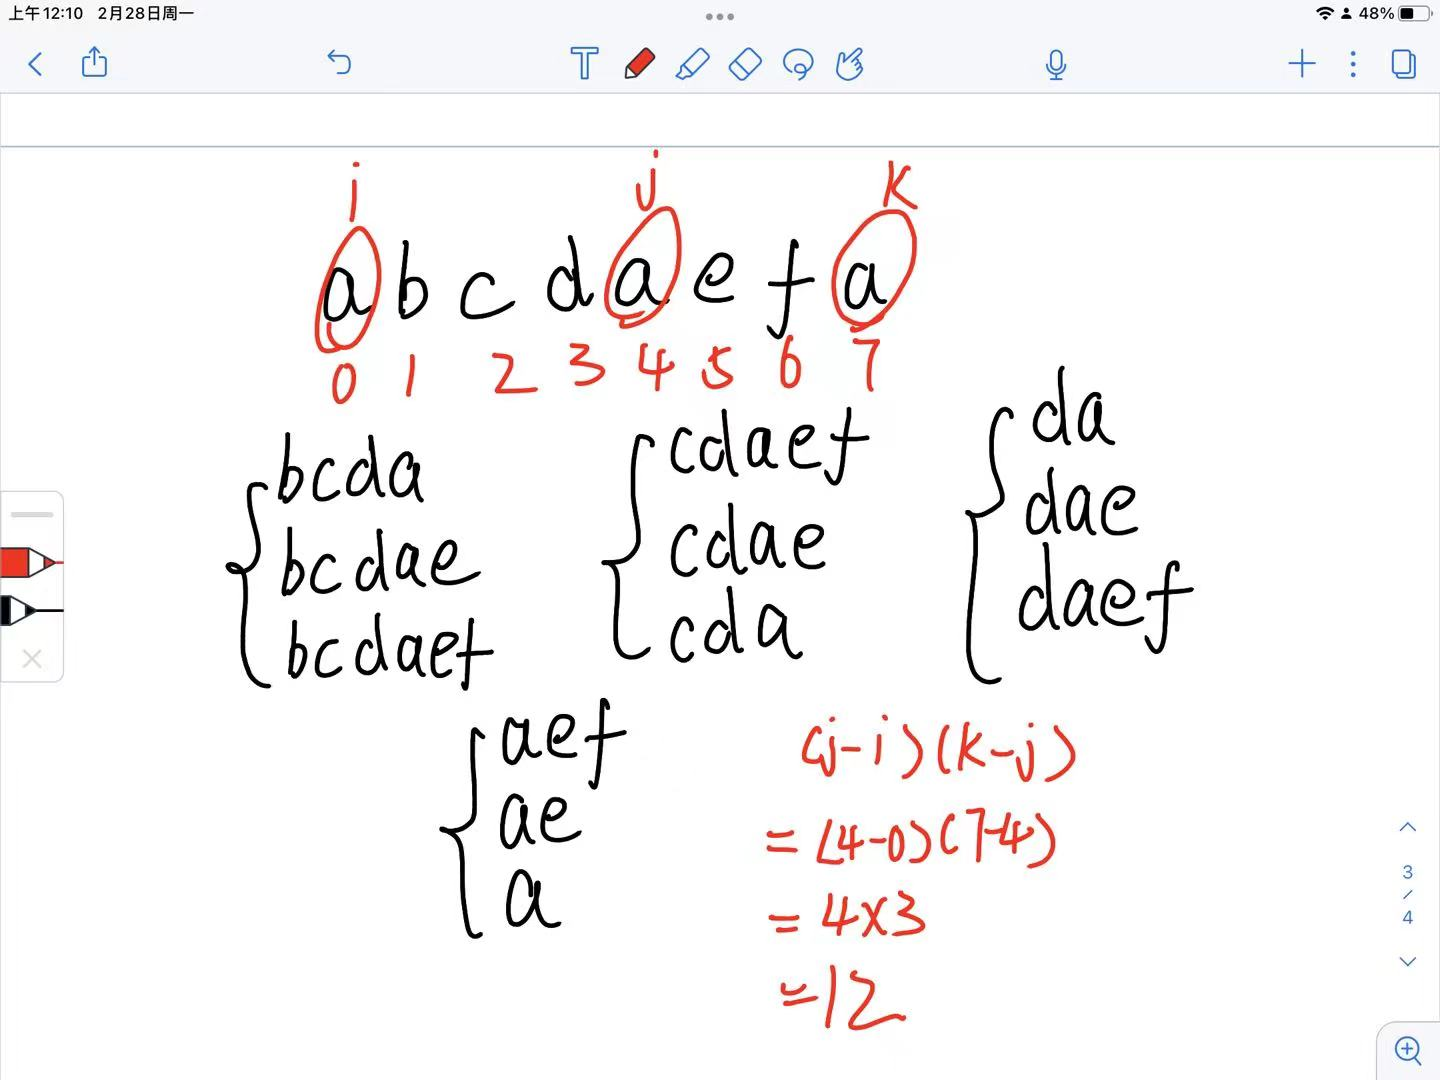 上午12:10 2月28日周一
48%
T
i j k
a b c d a e f a
0 1 2 3 4 5 6 7
bcda
bcdae
bcdaef
cdaef
cdae
cda
da
dae
daef
aef
ae
a
(j-i)(k-j)
=(4-0)(7-4)
=4×3
=12
3
/
4